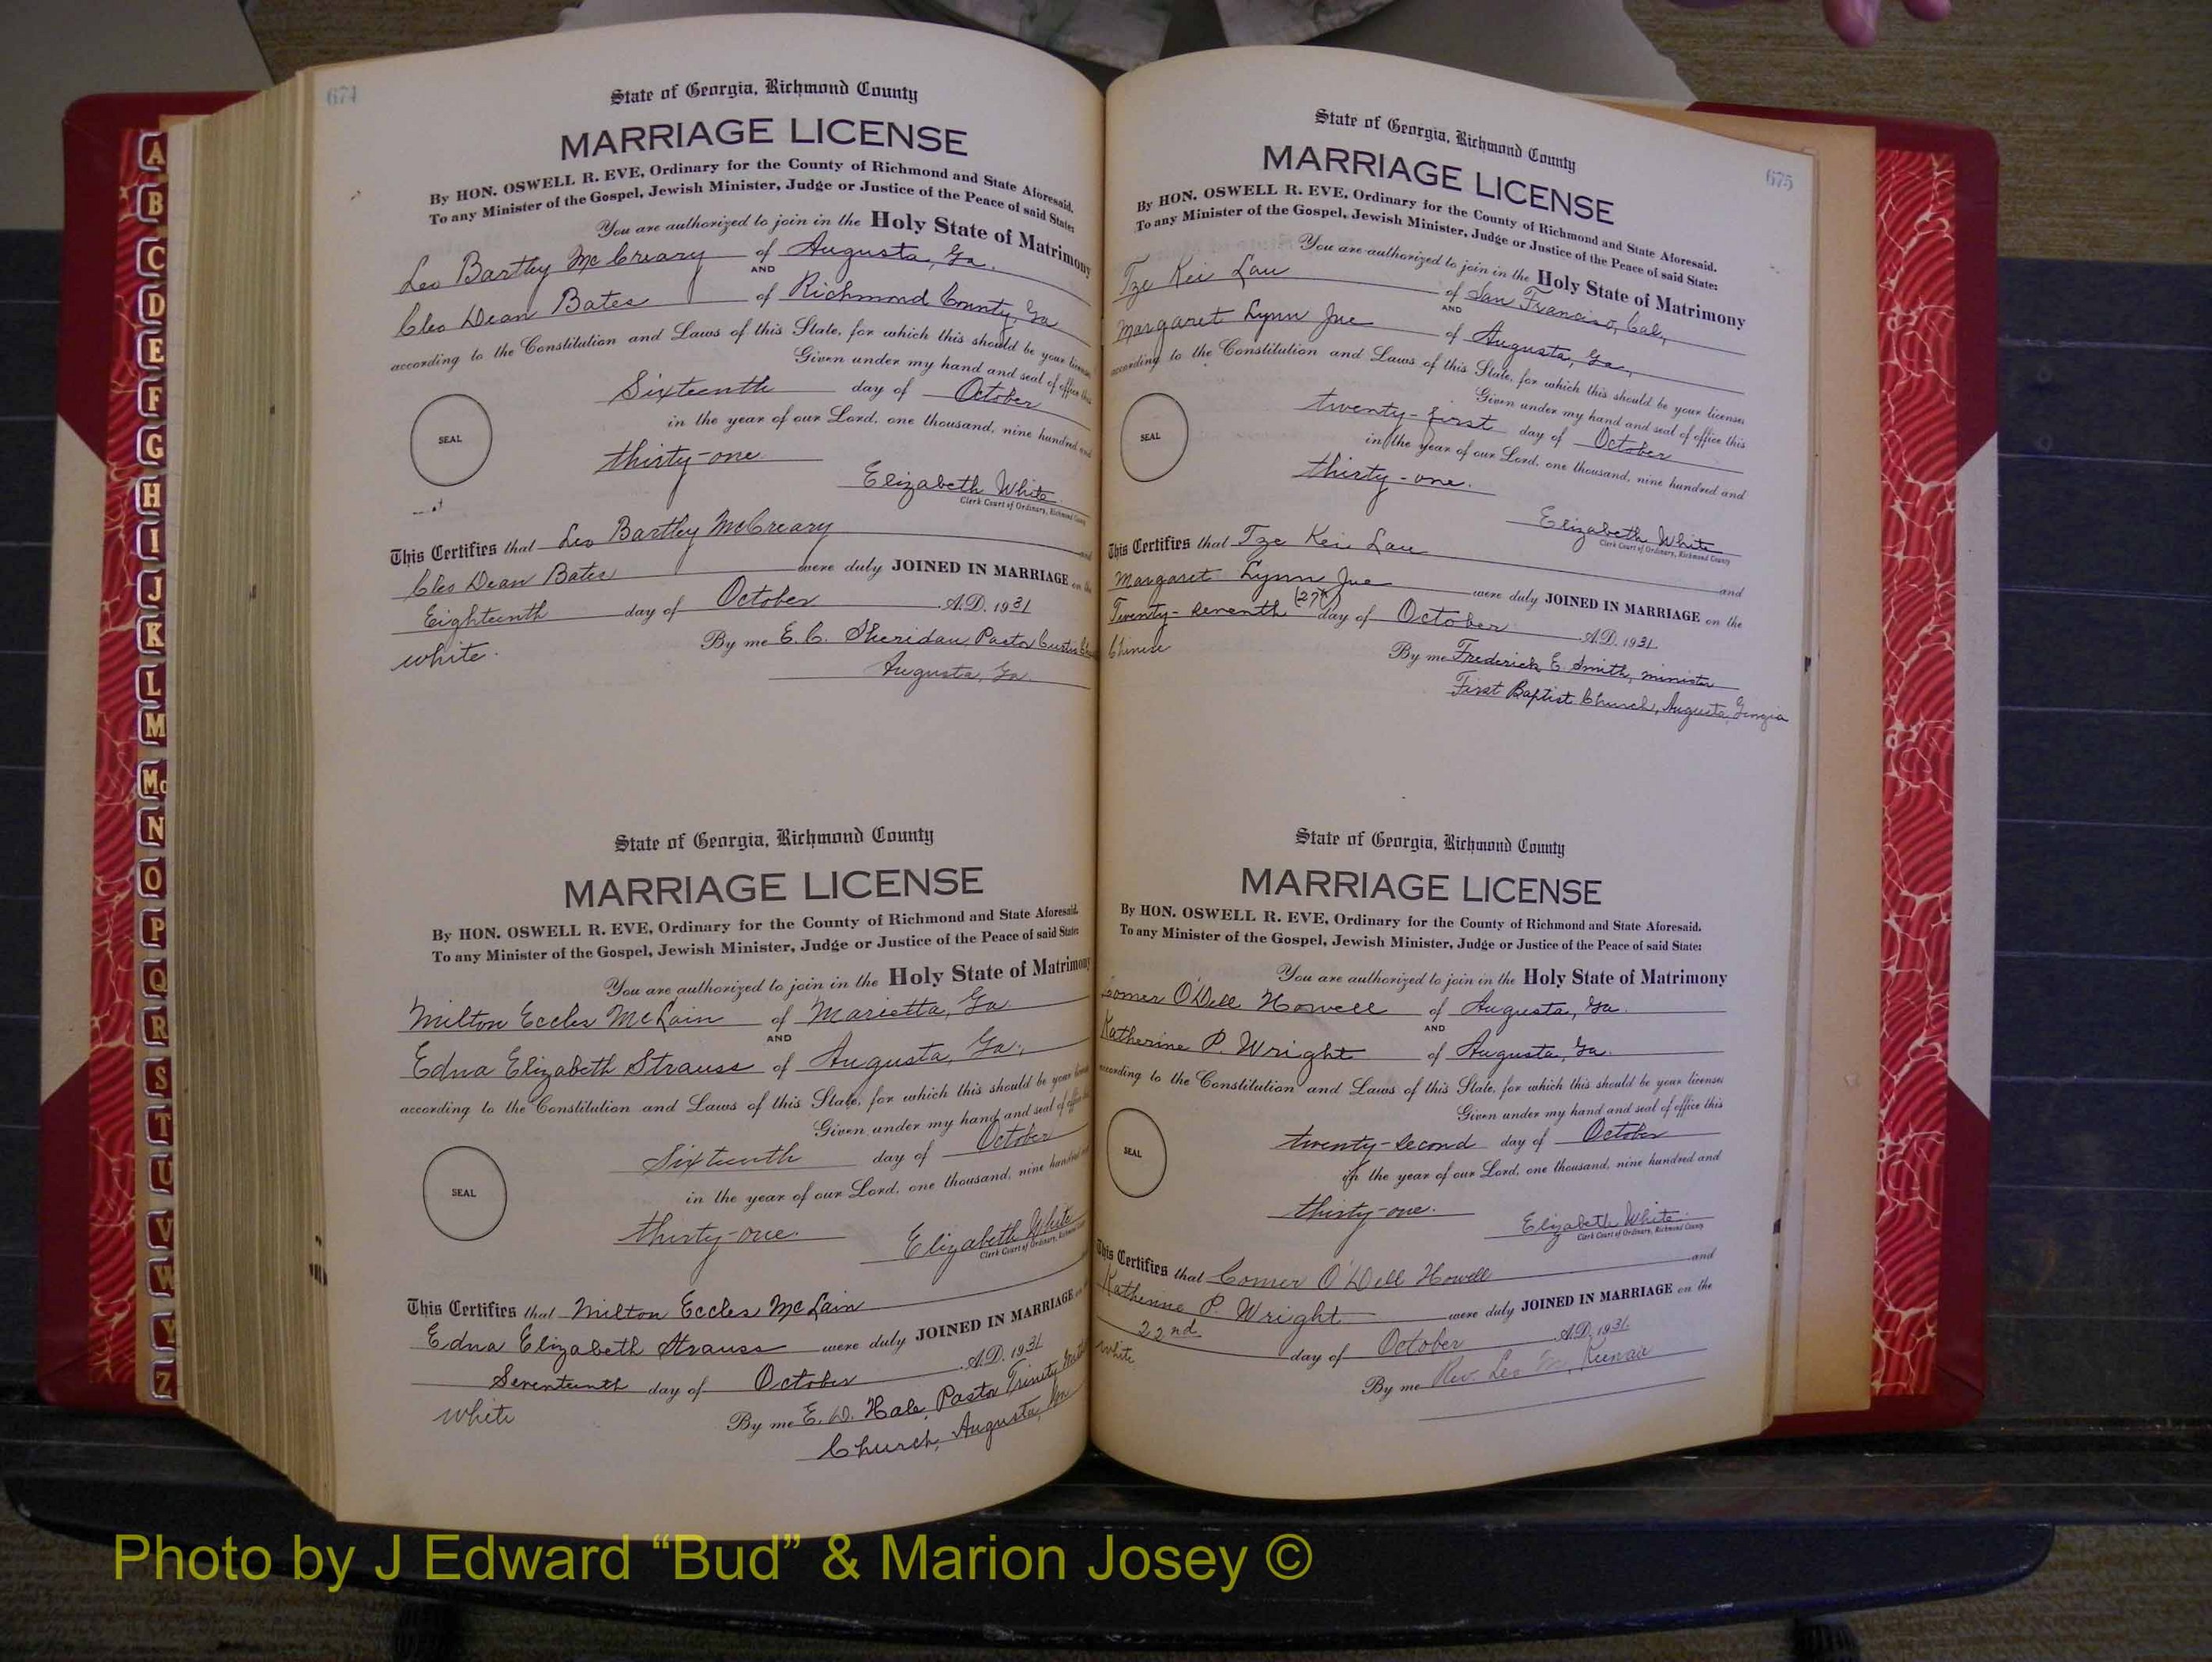 674
State of Georgia, Richmond County
MARRIAGE LICENSE
By HON. OSWELL R. EVE, Ordinary for the County of Richmond and State Aforesaid.
To any Minister of the Gospel, Jewish Minister, Judge or Justice of the Peace of said State:
You are authorized to join in the Holy State of Matrimony
Leo Bartley McCreary of Augusta, Ga.
AND
Cleo Dean Bates of Richmond County, Ga
according to the Constitution and Laws of this State, for which this should be your license
Given under my hand and seal of office this
Sixteenth day of October
in the year of our Lord, one thousand, nine hundred and
thirty-one
SEAL
Elizabeth White
Clerk Court of Ordinary, Richmond County
This Certifies that Leo Bartley McCreary and
Cleo Dean Bates were duly JOINED IN MARRIAGE on the
Eighteenth day of October A.D. 1931
white. By me E. C. Sheridan, Pastor Curtis
Augusta, Ga.
State of Georgia, Richmond County
MARRIAGE LICENSE
By HON. OSWELL R. EVE, Ordinary for the County of Richmond and State Aforesaid.
To any Minister of the Gospel, Jewish Minister, Judge or Justice of the Peace of said State:
You are authorized to join in the Holy State of Matrimony
Milton Eccles McLain of Marietta, Ga.
AND
Edna Elizabeth Strauss of Augusta, Ga.,
according to the Constitution and Laws of this State, for which this should be your license
Given under my hand and seal of office
Sixteenth day of October
in the year of our Lord, one thousand, nine hundred
thirty-one.
SEAL
Elizabeth White
Clerk Court of Ordinary, Richmond
This Certifies that Milton Eccles McLain
Edna Elizabeth Strauss were duly JOINED IN MARRIAGE
Seventeenth day of October A.D. 1931
white By me E. D. Hale, Pastor Trinity
Church, Augusta,
675
State of Georgia, Richmond County
MARRIAGE LICENSE
By HON. OSWELL R. EVE, Ordinary for the County of Richmond and State Aforesaid.
To any Minister of the Gospel, Jewish Minister, Judge or Justice of the Peace of said State:
You are authorized to join in the Holy State of Matrimony
Tze Kei Lau of San Francisco, Cal,
AND
Margaret Lynn Jue of Augusta, Ga.,
according to the Constitution and Laws of this State, for which this should be your license
Given under my hand and seal of office this
twenty-first day of October
in the year of our Lord, one thousand, nine hundred and
thirty-one.
SEAL
Elizabeth White
Clerk Court of Ordinary, Richmond County
This Certifies that Tze Kei Lau and
Margaret Lynn Jue were duly JOINED IN MARRIAGE on the
Twenty-seventh (27th) day of October A.D. 1931
Chinese By me Frederick E. Smith, minister
First Baptist Church, Augusta, Georgia
State of Georgia, Richmond County
MARRIAGE LICENSE
By HON. OSWELL R. EVE, Ordinary for the County of Richmond and State Aforesaid.
To any Minister of the Gospel, Jewish Minister, Judge or Justice of the Peace of said State:
You are authorized to join in the Holy State of Matrimony
Comer O'Dell Howell of Augusta, Ga.
AND
Katherine P. Wright of Augusta, Ga.
according to the Constitution and Laws of this State, for which this should be your license
Given under my hand and seal of office this
twenty-second day of October
in the year of our Lord, one thousand, nine hundred and
thirty-one.
SEAL
Elizabeth White.
Clerk Court of Ordinary, Richmond County
This Certifies that Comer O'Dell Howell and
Katherine P. Wright were duly JOINED IN MARRIAGE on the
22nd day of October A.D. 1931
white By me Rev. Leo M. Keenan
A
B
C
D
E
F
G
H
I
J
K
L
M
Mc
N
O
P
Q
R
S
T
U
V
W
Y
Z
Photo by J Edward “Bud” & Marion Josey ©